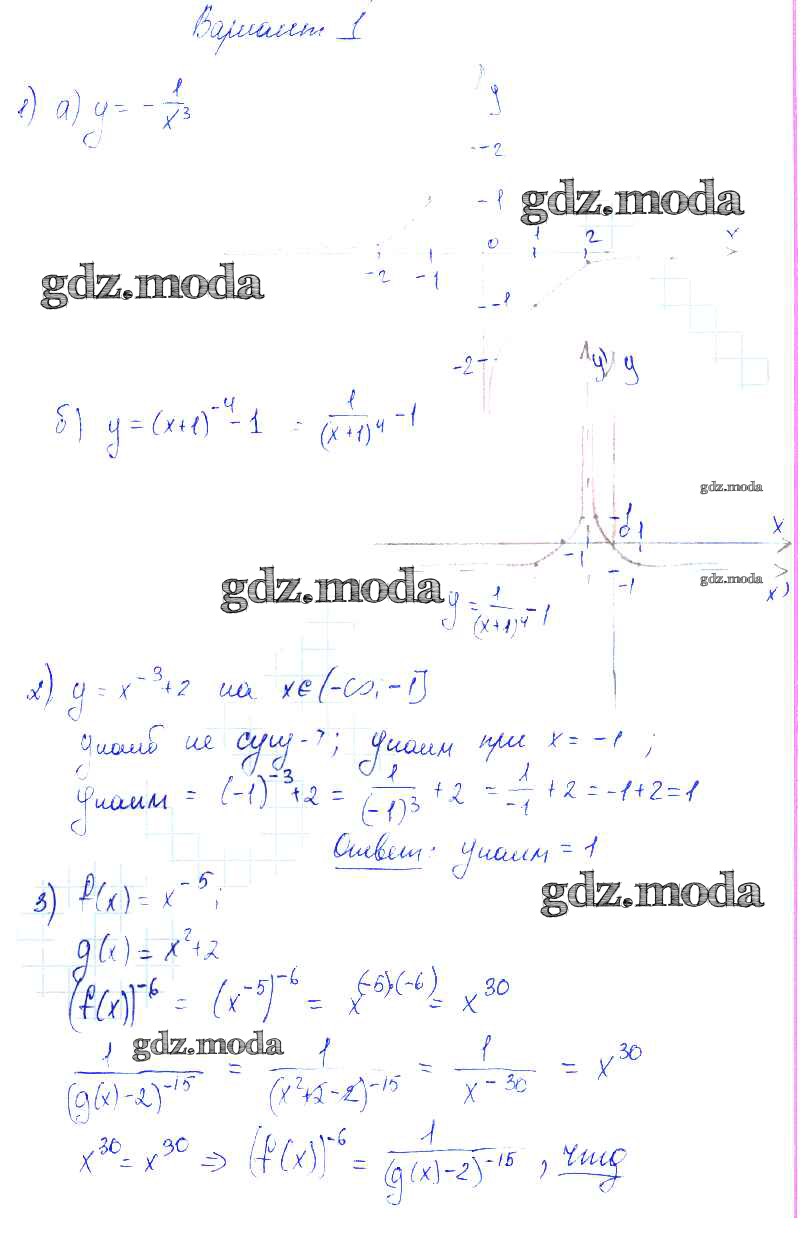 Вариант 1
1) а) y = - 1/x³
y
2
1
gdz.moda
0 1 2 x
-2 -1
gdz.moda
-1
-2
y) y
б) y = (x+1)⁻⁴ - 1 = 1/(x+1)⁴ - 1
gdz.moda
1
-1 0 1 x
gdz.moda
gdz.moda
-1 x)
y = 1/(x+1)⁴ - 1
2) y = x⁻³ + 2 на x ∈ (-∞; -1]
yнаиб не сущ-?; yнаим при x = -1;
yнаим = (-1)⁻³ + 2 = 1/(-1)³ + 2 = 1/-1 + 2 = -1 + 2 = 1
Ответ: yнаим = 1
gdz.moda
3) f(x) = x⁻⁵;
g(x) = x² + 2
(f(x))⁻⁶ = (x⁻⁵)⁻⁶ = x⁽⁻⁵⁾·⁽⁻⁶⁾ = x³⁰
gdz.moda
1/(g(x)-2)⁻¹⁵ = 1/(x²+2-2)⁻¹⁵ = 1/x⁻³⁰ = x³⁰
x³⁰ = x³⁰ ⇒ (f(x))⁻⁶ = 1/(g(x)-2)⁻¹⁵, чтд